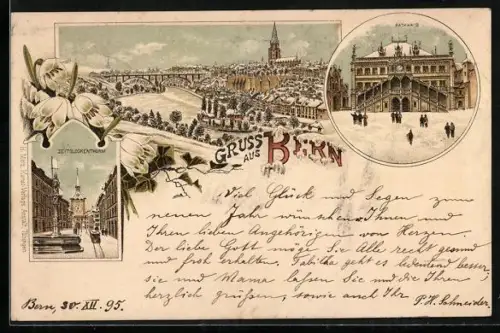 RATHAUS
GRUSS
AUS
BERN
ZEITGLOCKENTHURM
Viel Glück und Segen zum
neuen Jahr wünschen Ihnen und
Ihren lieben Angehörigen von Herzen.
Der liebe Gott möge Sie Alle recht gesund
und froh erhalten. Tabitha geht es bedeutend besser,
sie und Mama lassen Sie und die Ihren
herzlich grüßen, sowie auch Ihr
P. H. Schneider.
Bern, 30. XII. 95.